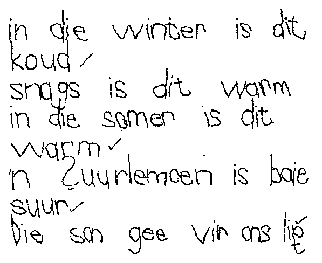 in die winter is dit
koud ✓
snags is dit warm
in die somer is dit
warm ✓
'n Zuurlemoen is baie
suur ✓
Die son gee vir ons